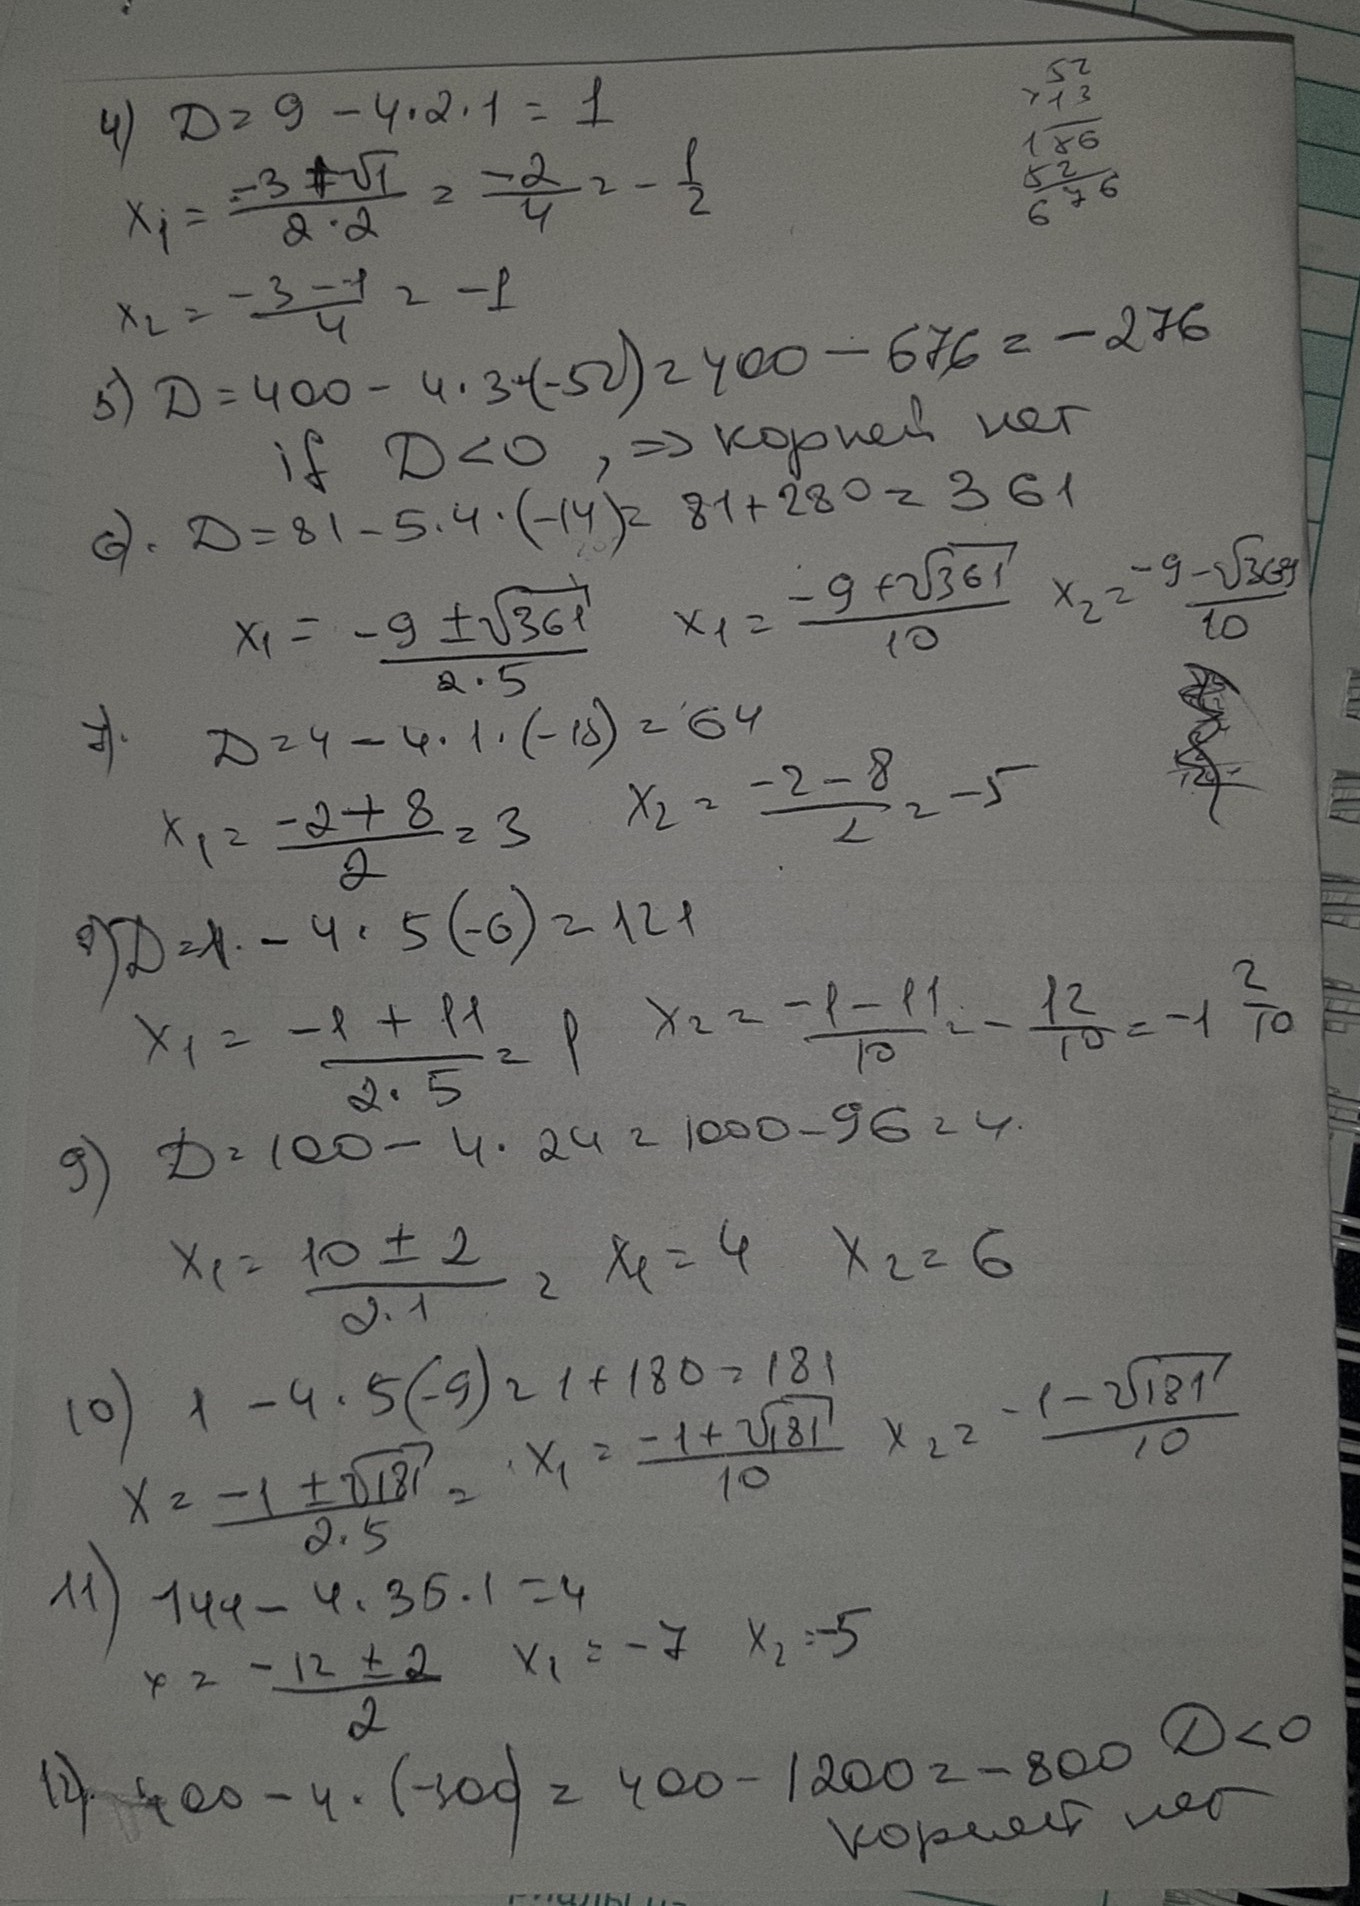 4) D = 9 - 4·2·1 = 1
52
×13
186
52
676
x₁ = (-3 + √1)/(2·2) = -2/4 = -1/2
x₂ = (-3 - 1)/4 = -1
5) D = 400 - 4·3·(-52) = 400 - 676 = -276
if D < 0, => корней нет
6). D = 81 - 5·4·(-14) = 81 + 280 = 361
x₁ = (-9 ± √361)/(2·5) x₁ = (-9 + √361)/10 x₂ = (-9 - √361)/10
7). D = 4 - 4·1·(-15) = 64
x₁ = (-2 + 8)/2 = 3 x₂ = (-2 - 8)/2 = -5
8) D = 1 - 4·5(-6) = 121
x₁ = (-1 + 11)/(2·5) = 1 x₂ = (-1 - 11)/10 = -12/10 = -1 2/10
9) D = 100 - 4·24 = 1000 - 96 = 4.
x₁ = (10 ± 2)/(2·1) = x₁ = 4 x₂ = 6
10) 1 - 4·5(-9) = 1 + 180 = 181
x = (-1 ± √181)/(2·5) = x₁ = (-1 + √181)/10 x₂ = (-1 - √181)/10
11) 144 - 4·35·1 = 4
x = (-12 ± 2)/2 x₁ = -7 x₂ = -5
12). 400 - 4·(-300) = 400 - 1200 = -800 D < 0
корней нет